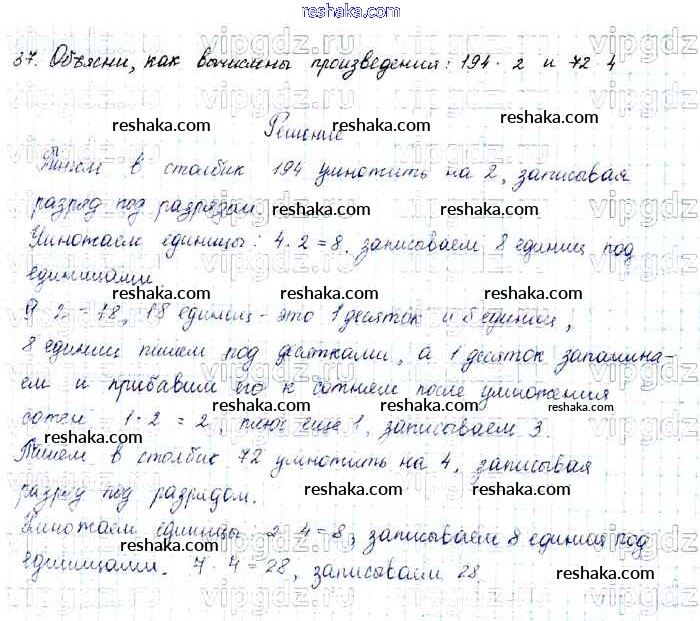 reshaka.com
37. Объясни, как вычислены произведения: 194 · 2 и 72 · 4
Решение
Пишем в столбик 194 умножить на 2, записывая
разряд под разрядом.
Умножаем единицы: 4 · 2 = 8, записываем 8 единиц под
единицами.
9 · 2 = 18, 18 единиц - это 1 десяток и 8 единиц,
8 единиц пишем под десятками, а 1 десяток запомина-
ем и прибавим его к сотням после умножения
сотен 1 · 2 = 2, плюс еще 1, записываем 3.
Пишем в столбик 72 умножить на 4, записывая
разряд под разрядом.
Умножаем единицы 2 · 4 = 8, записываем 8 единиц под
единицами. 7 · 4 = 28, записываем 28.